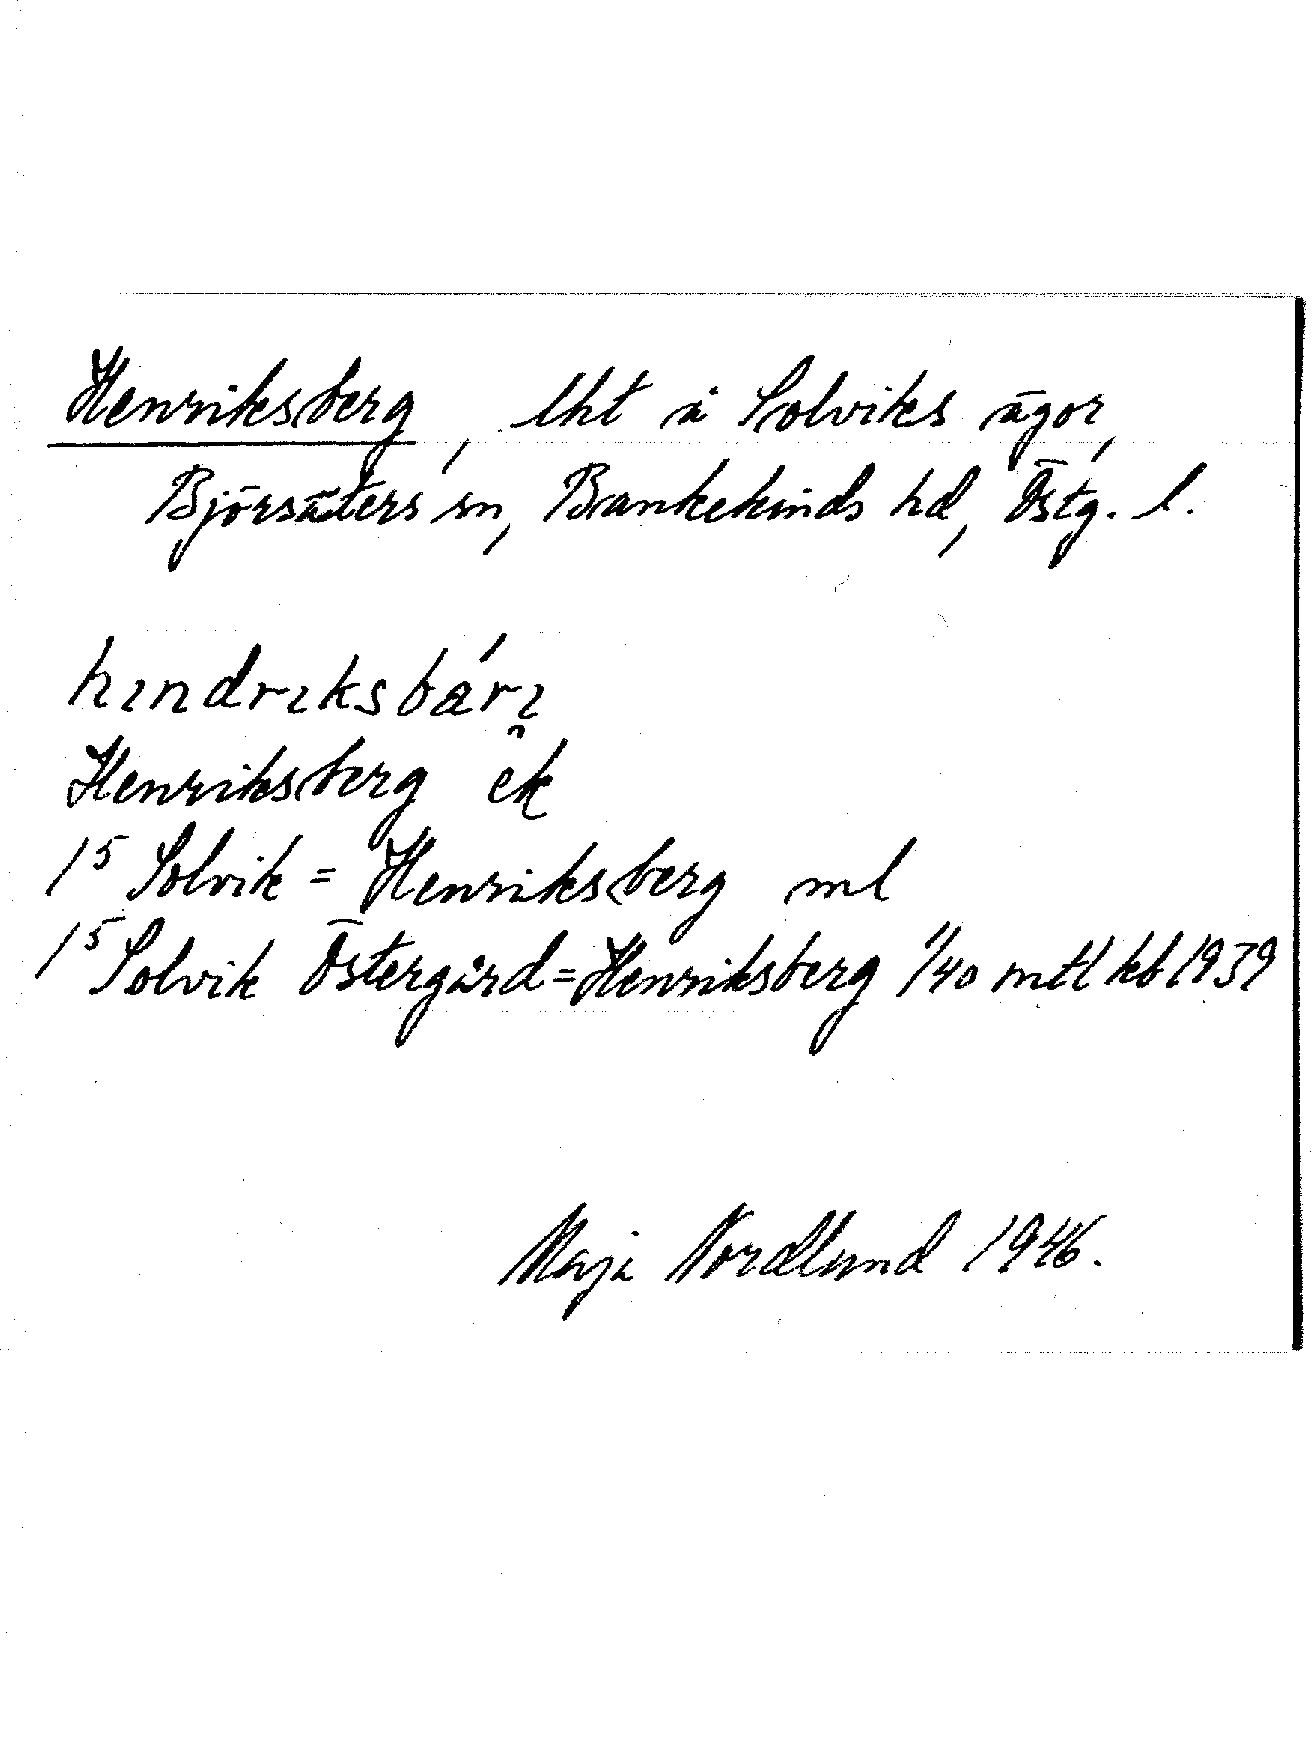 Henriksberg, lht å Solviks ägor,
Björsäters sn, Bankekinds hd, Östg. l.
hındrıksbárı̯
Henriksberg ek
1⁵ Solvik = Henriksberg ml
1⁵ Solvik Östergård = Henriksberg 1/40 mtl kb 1939
Maja Nordlund 1946.